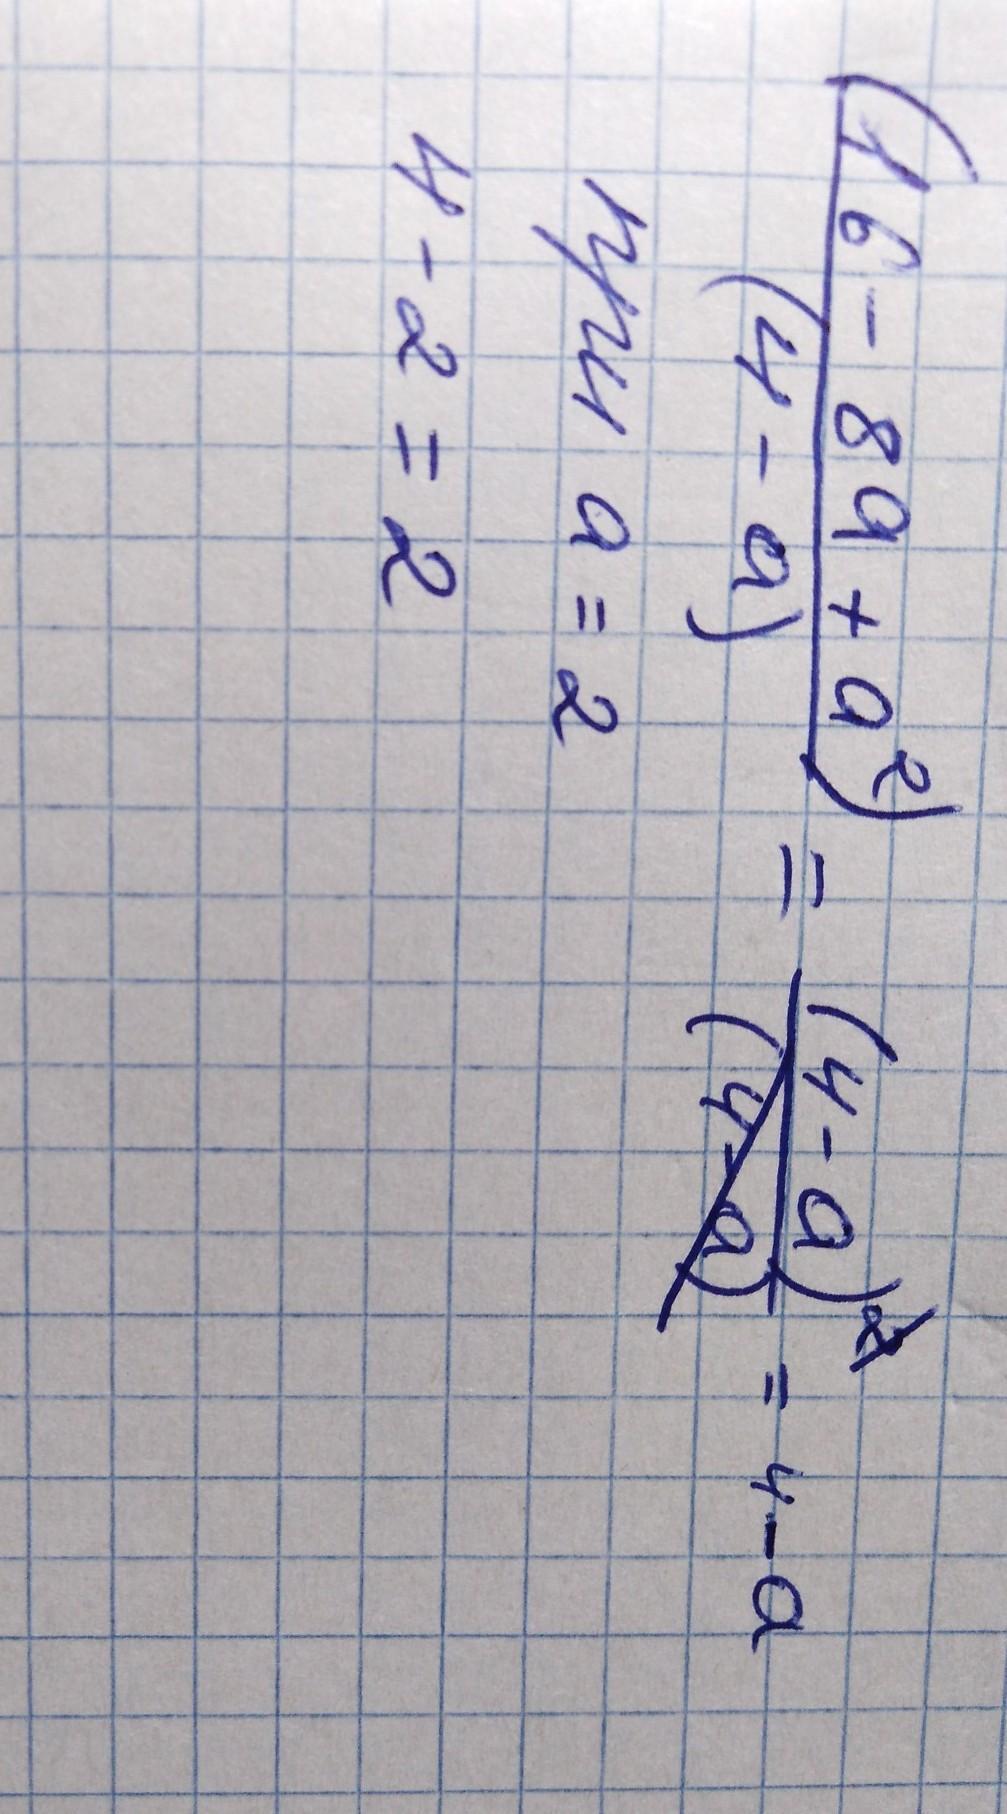 (16 - 8a + a²) / (4 - a) = (4 - a)² / (4 - a) = 4 - a
при a = 2
4 - 2 = 2